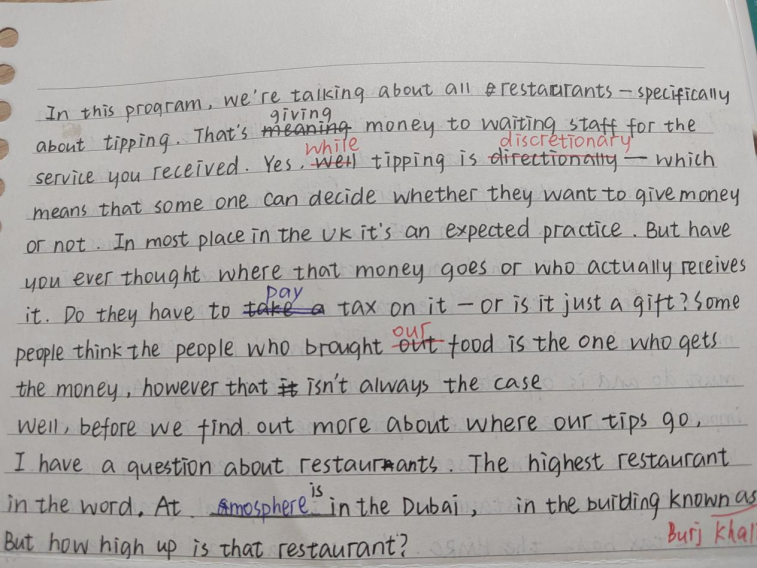 In this program, we're talking about all restaurants – specifically
giving
about tipping. That's meaning money to waiting staff for the
while discretionary
service you received. Yes, well tipping is directionally — which
means that some one can decide whether they want to give money
or not. In most place in the UK it's an expected practice. But have
you ever thought where that money goes or who actually receives
pay
it. Do they have to take a tax on it – or is it just a gift? Some
our
people think the people who brought out food is the one who gets
the money, however that it isn't always the case
Well, before we find out more about where our tips go,
I have a question about restaurants. The highest restaurant
is
in the word. At Atmosphere in the Dubai, in the building known as
But how high up is that restaurant? Burj Khal